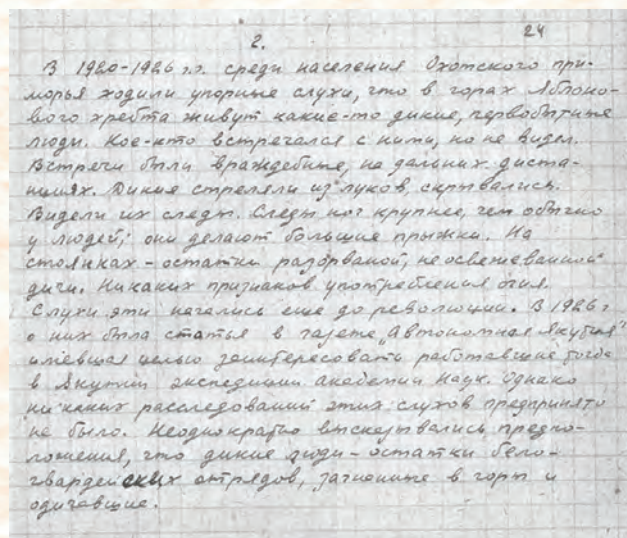 2. 24
В 1920-1926 г.г. среди населения Охотского при-
морья ходили упорные слухи, что в горах Яблоно-
вого хребта живут какие-то дикие, первобытные
люди. Кое-кто встречался с ними, но не видел.
Встречи были враждебные, на дальних диста-
нциях. Дикие стреляли из луков, скрывались.
Видели их следы. Следы ног крупнее, чем обычно
у людей; они делают большие прыжки. На
стоянках - остатки разорваной, неосвежеванной
дичи. Никаких признаков употребления огня.
Слухи эти начались еще до революции. В 1926 г
о них была статья в газете "Автономная Якутия"
имевшая целью заинтересовать работавшие тогда
в Якутии экспедиции академии Наук. Однако
никаких расследований этих слухов предпринято
не было. Неоднократно высказывались предпо-
ложения, что дикие люди - остатки бело-
гвардейских отрядов, загнанные в горы и
одичавшие.